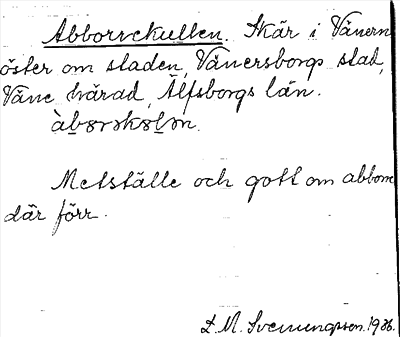 Abborrekullen. Skär i Vänern
öster om staden, Vänersborgs stad,
Väne härad, Älfsborgs län.
àbørskølon.
Metställe och gott om abborre
där förr.
L. M. Svenungsson. 1926.